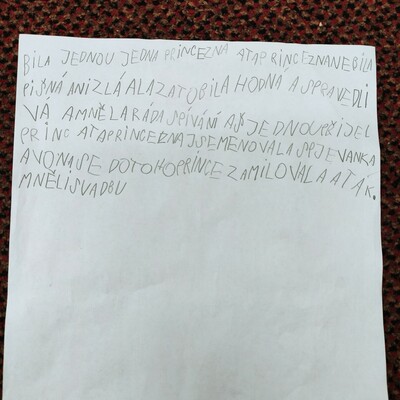 BILA JEDNOU JEDNA PRINCEZNA ATAPRINCEZNANEBILA
PIŠNÁ ANIZLÁ ALAZATOBILA HODNÁ ASPRAVEDLI
VÁ AMNĚLA RÁDA SPÍVÁNÍ AŠ JEDNOU PŘIJEL
PRINC ATAPRINCEZNAJSEMENOVALA SPJEVANKA
AVONASE DOTOHOPRINCE ZAMILOVALA ATAK.
MNĚLISVADBU